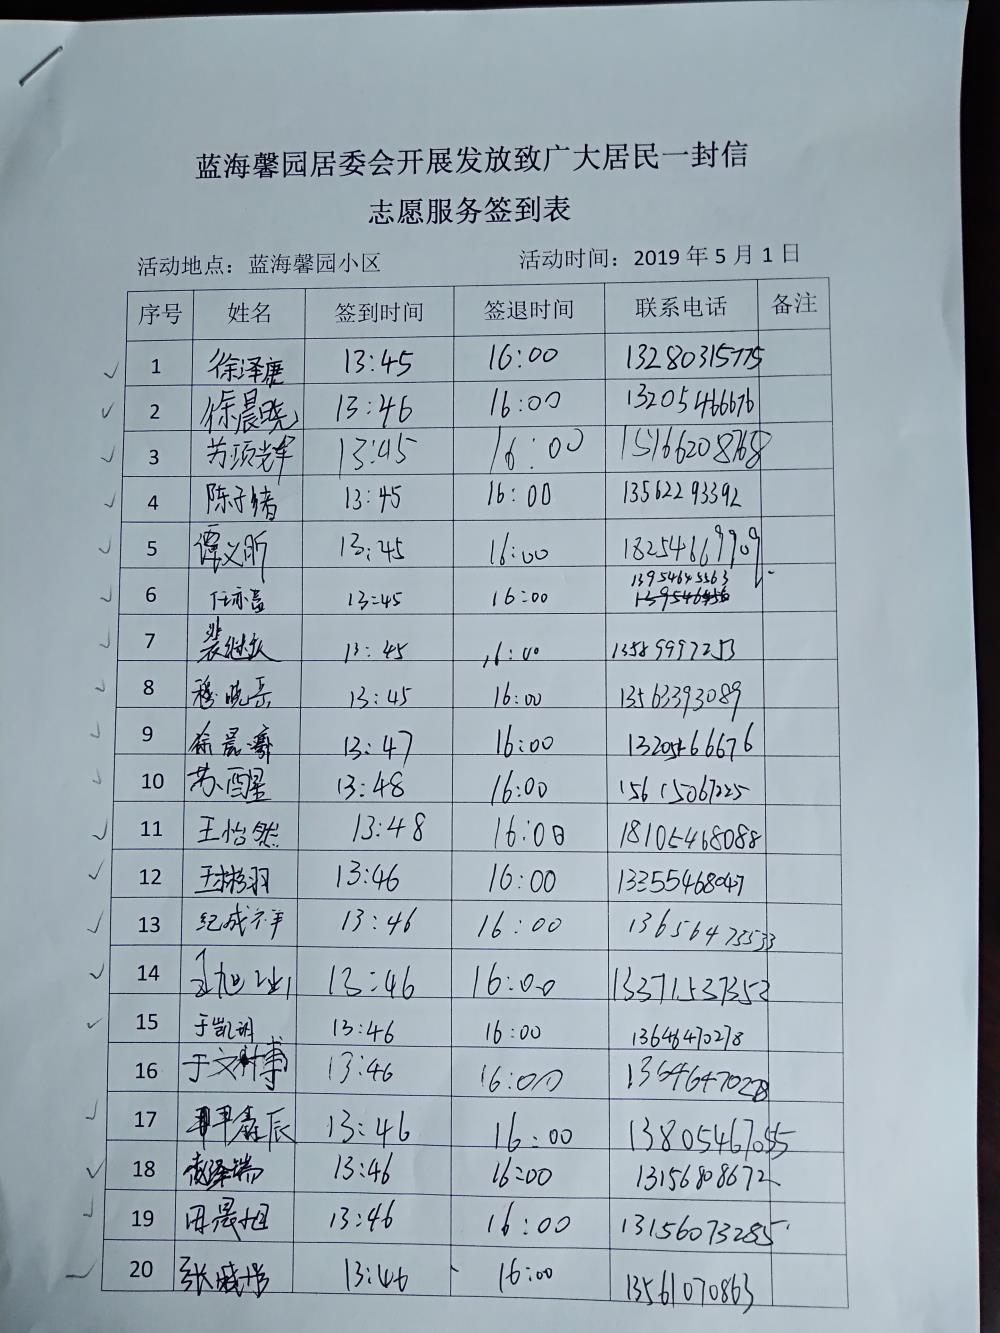 蓝海馨园居委会开展发放致广大居民一封信
志愿服务签到表
活动地点：蓝海馨园小区 活动时间：2019 年 5 月 1 日
序号 姓名 签到时间 签退时间 联系电话 备注
1 徐泽康 13:45 16:00 13280315775
2 徐晨晓 13:46 16:00 13205466676
3 13:45 16:00 15166208768
4 陈子绪 13:45 16:00 13562293392
5 谭义昕 13:45 16:00 18254669909
13954645563
6 任亦孟 13:45 16:00
7 裴继钦 13:45 16:00 13589997253
8 穆晓岳 13:45 16:00 13563393089
9 徐晨 13:47 16:00 13205466676
10 苏醒 13:48 16:00 15615067225
11 王怡然 13:48 16:00 18105468088
12 羽 13:46 16:00 13355468047
13 纪成祥 13:46 16:00 13656473533
14 13:46 16:00 13371537352
15 于凯明 13:46 16:00 13646470278
16 于文博 13:46 16:00 13646470278
17 辰 13:46 16:00 13805467055
18 泽瑞 13:46 16:00 13156808672
19 田晨旭 13:46 16:00 13156073285
20 张 13:46 16:00 13561070863